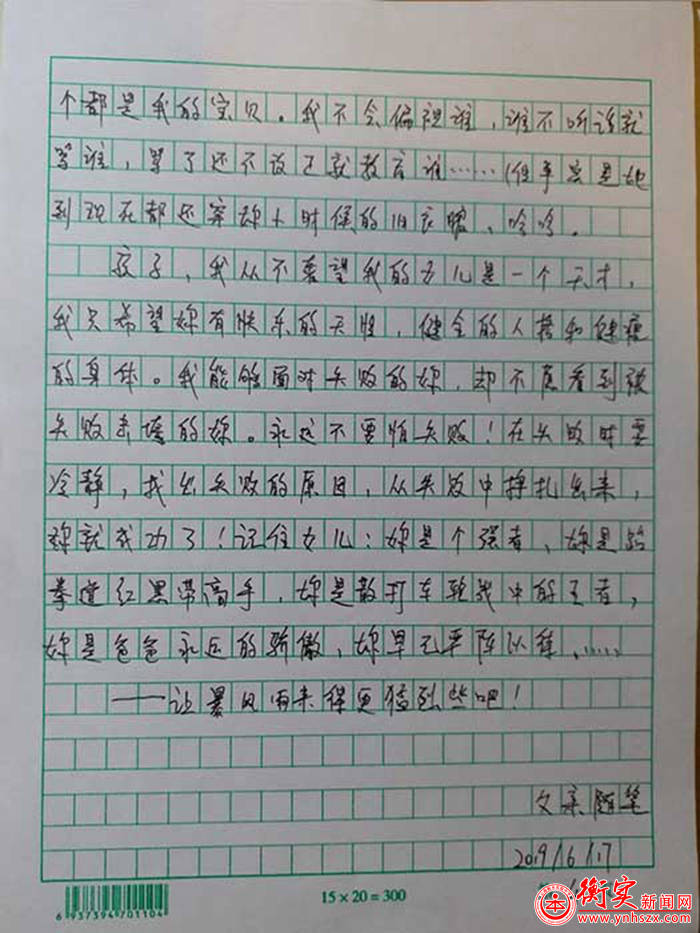 个都是我的宝贝。我不会偏视谁,谁不听话就
骂谁,骂了还不改正就教育谁……(但事实是她
到现在都还穿妳小时候的旧衣服、哈哈。
孩子,我从不奢望我的女儿是一个天才,
我只希望妳有快乐的天性,健全的人格和健康
的身体。我能够面对失败的妳,却不愿看到被
失败击垮的妳。永远不要怕失败!在失败时要
冷静,找出失败的原因,从失败中挣扎出来,
妳就成功了!记住女儿:妳是个强者、妳是跆
拳道红黑带高手,妳是散打车轮战中的王者,
妳是爸爸永远的骄傲,妳早已严阵以待……
——让暴风雨来得更猛烈些吧!
父亲随笔
2019/6/17
15×20=300
6 937394 701104
衡实新闻网
www.ynhszx.com